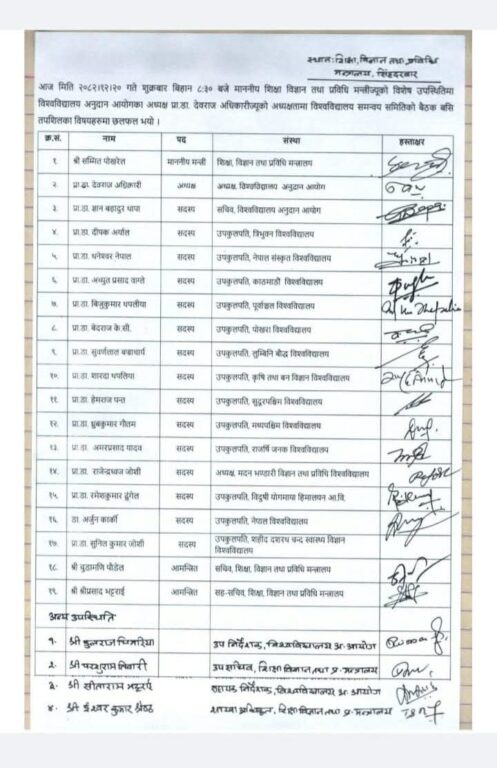 स्थानः शिक्षा, विज्ञान तथा प्रविधि
मन्त्रालय, सिंहदरबार
आज मिति २०८२।१२।२० गते शुक्रबार बिहान ८:३० बजे माननीय शिक्षा विज्ञान तथा प्रविधि मन्त्रीज्यूको विशेष उपस्थितिमा
विश्वविद्यालय अनुदान आयोगका अध्यक्ष प्रा.डा. देवराज अधिकारीज्यूको अध्यक्षतामा विश्वविद्यालय समन्वय समितिको बैठक बसि
तपशिलका विषयहरुमा छलफल भयो ।
क्र.सं. नाम पद संस्था हस्ताक्षर
१. श्री सस्मित पोखरेल माननीय मन्त्री शिक्षा, विज्ञान तथा प्रविधि मन्त्रालय
२. प्रा.डा. देवराज अधिकारी अध्यक्ष अध्यक्ष, विश्वविद्यालय अनुदान आयोग
३. प्रा.डा. ज्ञान बहादुर थापा सदस्य सचिव, विश्वविद्यालय अनुदान आयोग
४. प्रा.डा. दीपक अर्याल सदस्य उपकुलपति, त्रिभुवन विश्वविद्यालय
५. प्रा.डा. धनेश्वर नेपाल सदस्य उपकुलपति, नेपाल संस्कृत विश्वविद्यालय
६. प्रा.डा. अच्युत प्रसाद वाग्ले सदस्य उपकुलपति, काठमाडौं विश्वविद्यालय
७. प्रा.डा. बिजुकुमार थपलीया सदस्य उपकुलपति, पूर्वाञ्चल विश्वविद्यालय
८. प्रा.डा. बेदराज के.सी. सदस्य उपकुलपति, पोखरा विश्वविद्यालय
९. प्रा.डा. सुवर्णलाल बज्राचार्य सदस्य उपकुलपति, लुम्बिनि बौद्ध विश्वविद्यालय
१०. प्रा.डा. शारदा थपलिया सदस्य उपकुलपति, कृषि तथा बन विज्ञान विश्वविद्यालय
११. प्रा.डा. हेमराज पन्त सदस्य उपकुलपति, सुदूरपश्चिम विश्वविद्यालय
१२. प्रा.डा. ध्रुबकुमार गौतम सदस्य उपकुलपति, मध्यपश्चिम विश्वविद्यालय
१३. प्रा.डा. अमरप्रसाद यादव सदस्य उपकुलपति, राजर्षि जनक विश्वविद्यालय
१४. प्रा.डा. राजेन्द्रध्वज जोशी सदस्य अध्यक्ष, मदन भण्डारी विज्ञान तथा प्रविधि विश्वविद्यालय
१५. प्रा.डा. रमेशकुमार ढुंगेल सदस्य उपकुलपति, विदुषी योगमाया हिमालयन आ.वि.
१६. डा. अर्जुन कार्की सदस्य उपकुलपति, नेपाल विश्वविद्यालय
१७. प्रा.डा. सुनिल कुमार जोशी सदस्य उपकुलपति, शहीद दशरथ चन्द स्वास्थ्य विज्ञान
विश्वविद्यालय
१८. श्री चुडामणि पौडेल आमन्त्रित सचिव, शिक्षा, विज्ञान तथा प्रविधि मन्त्रालय
१९. श्री श्रीप्रसाद भट्टराई आमन्त्रित सह-सचिव, शिक्षा, विज्ञान तथा प्रविधि मन्त्रालय
अन्य उपस्थिति
१. श्री कुलराज उप निर्देशक, विश्वविद्यालय अ. आयोग
२. श्री परशुराम तिवारी उपसचिव, शिक्षा विज्ञान तथा प्र. मन्त्रालय
३. श्री सीताराम निर्देशक, विश्वविद्यालय अ. आयोग
४. श्री ईश्वर कुमार श्रेष्ठ शाखा अधिकृत, शिक्षा विज्ञान तथा प्र. मन्त्रालय